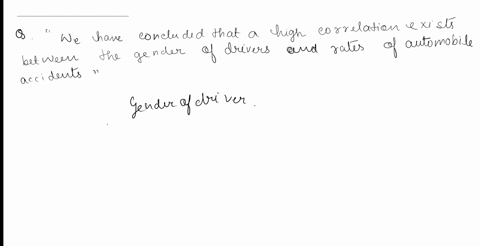 Q. "We have concluded that a high correlation exists
between the gender of drivers and rates of automobile
accidents"
Gender of driver.